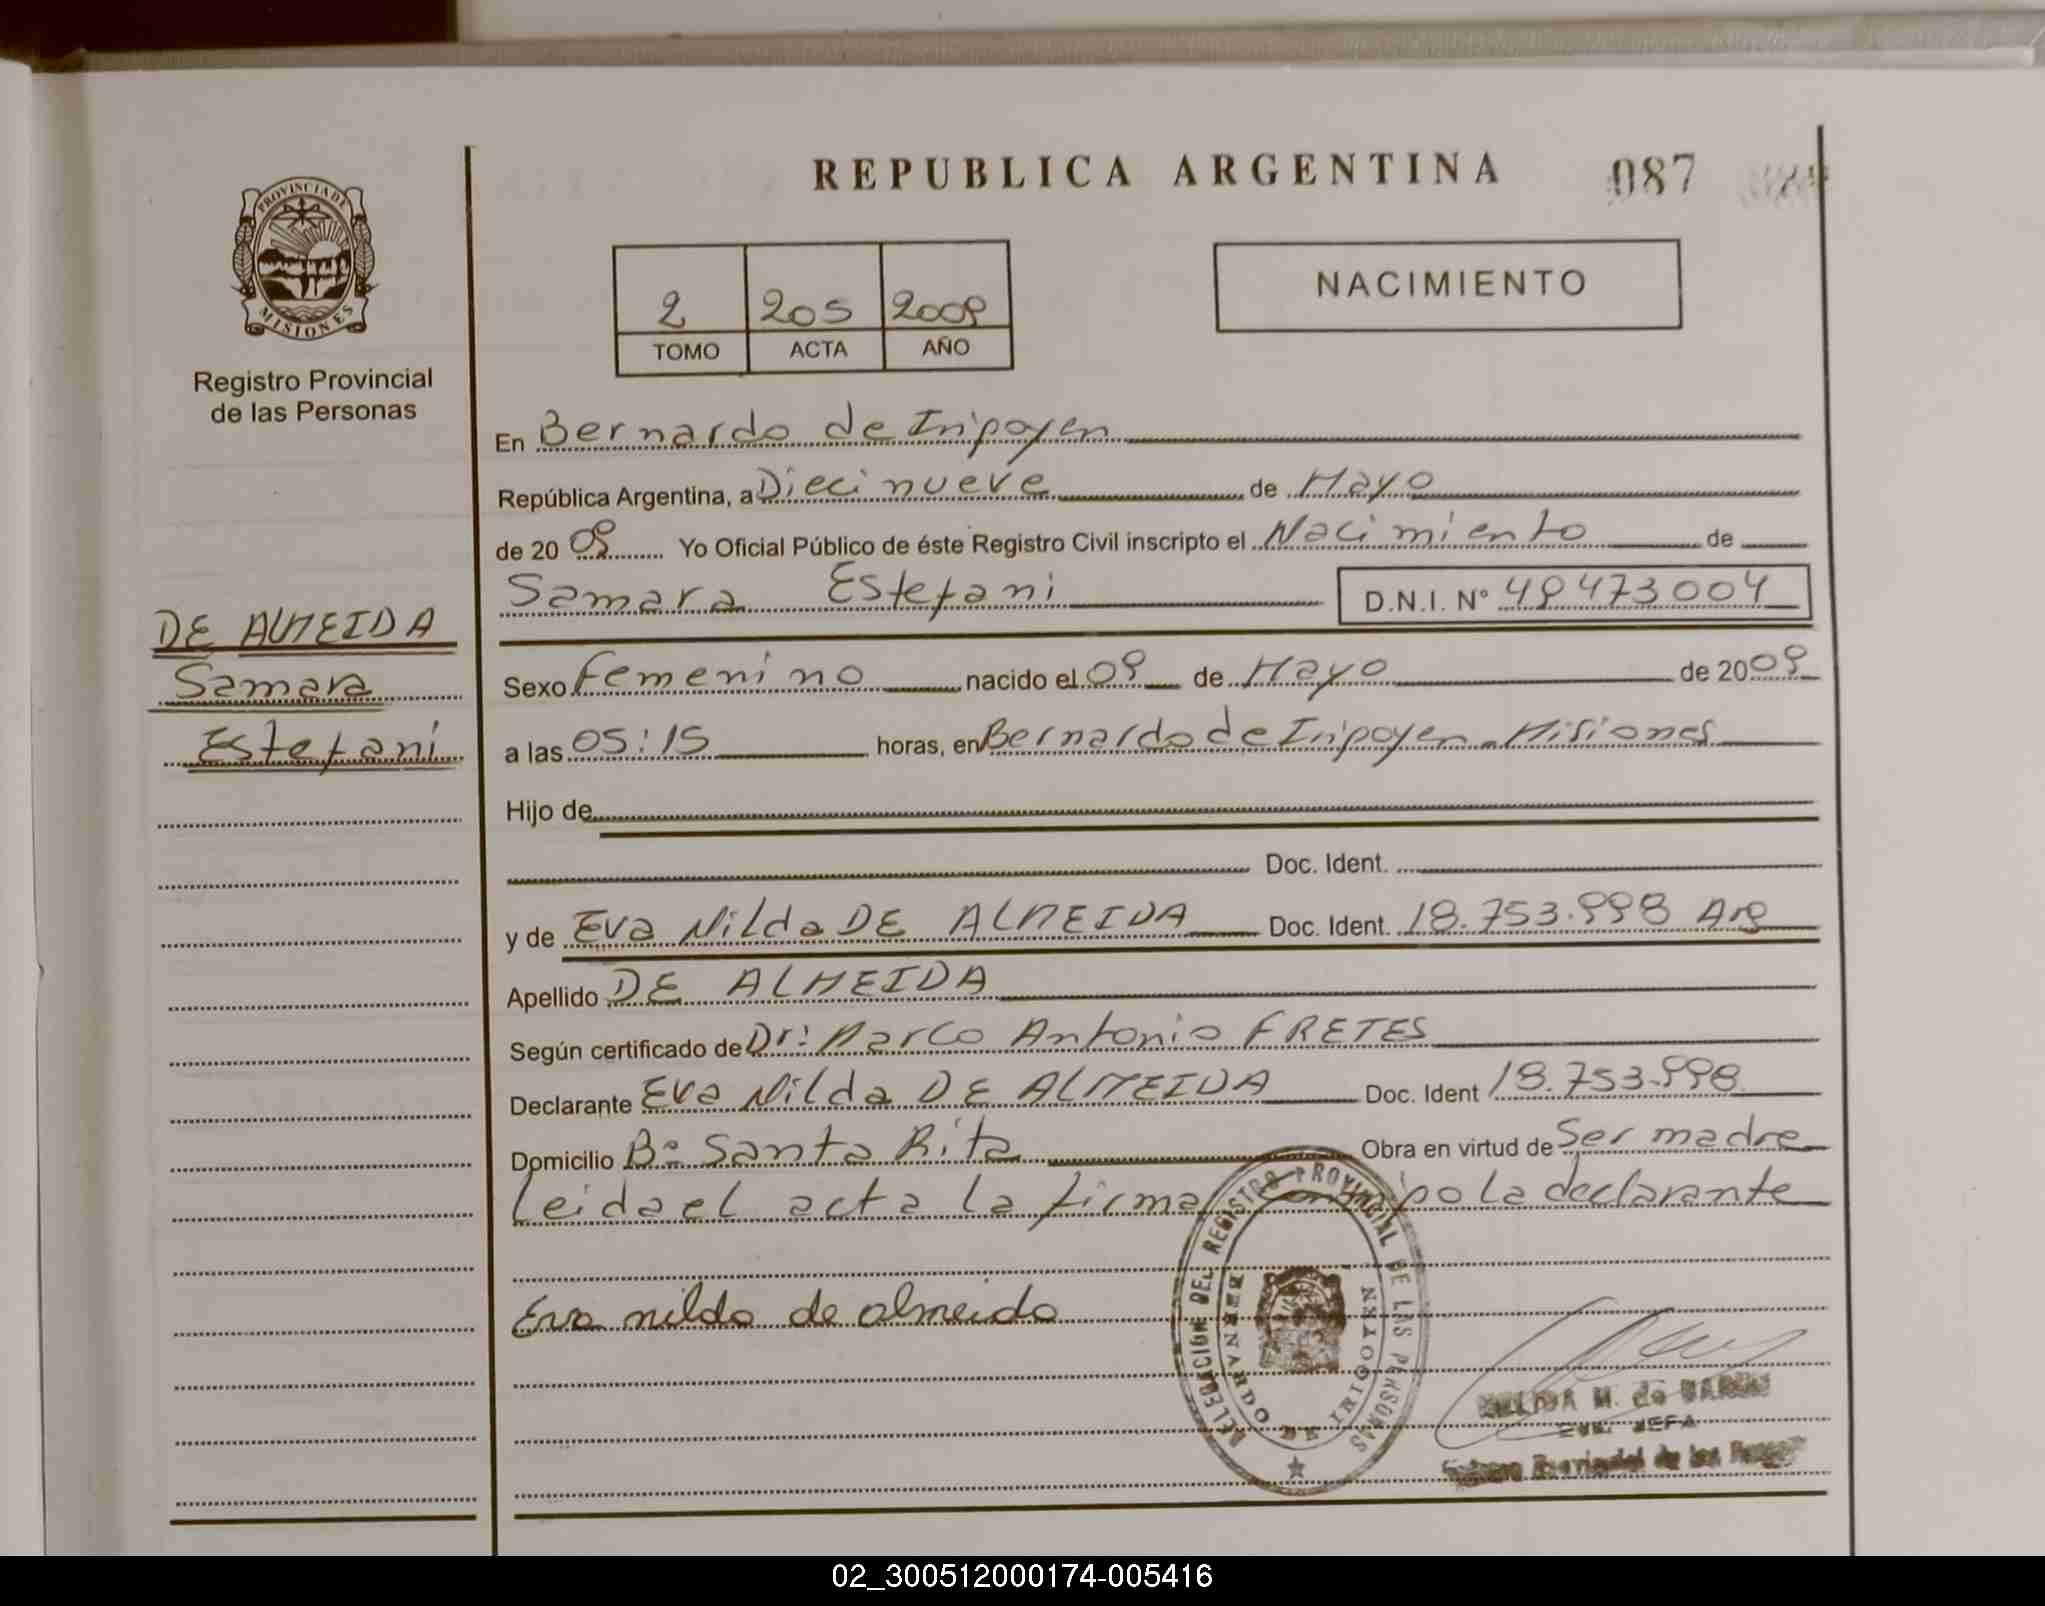 REPUBLICA ARGENTINA 087
PROVINCIA DE
MISIONES
Registro Provincial
de las Personas
2 205 2009
TOMO ACTA AÑO
NACIMIENTO
En Bernardo de Iripoyen
República Argentina, a Diecinueve de Mayo
de 20 09 Yo Oficial Público de éste Registro Civil inscripto el Nacimiento de
Samara Estefani D.N.I. N° 49473004
DE ALMEIDA
Samara
Estefani
Sexo Femenino nacido el 09 de Mayo de 2009
a las 05:15 horas, en Bernardo de Iripoyen - Misiones
Hijo de
Doc. Ident.
y de Eva Nilda DE ALMEIDA Doc. Ident. 18.753.998 Arg
Apellido DE ALMEIDA
Según certificado de Dr: Marco Antonio FRETES
Declarante Eva Nilda DE ALMEIDA Doc. Ident 18.753.998
Domicilio B° Santa Rita Obra en virtud de Ser madre
Leida el acta la firma la declarante
Eva nilda de almeida
DELEGACION DEL REGISTRO PROVINCIAL DE LAS PERSONAS
BERNARDO DE IRIGOYEN
M. de
JEFA
Provincial de las
02_300512000174-005416